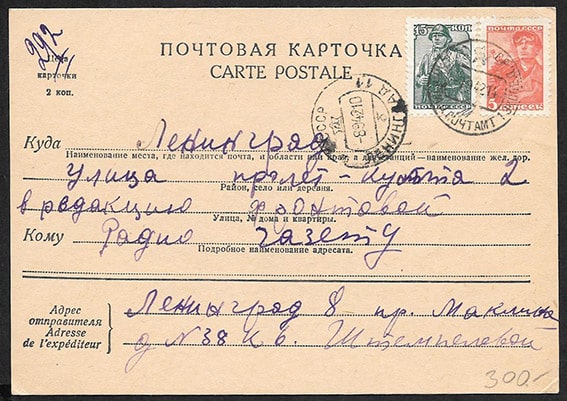 292
ПОЧТОВАЯ КАРТОЧКА
CARTE POSTALE
Цена
карточки
2 коп.
15 КОП
ПОЧТА СССР
ПОЧТА СССР
5 КОПЕЕК
СССР
ЛЕНИНГРАД 11
894210
ПОЧТАМТ 1
Куда Ленинград
Наименование места, где находится почта, и области или края, а для станций—наименование жел. дор.
Улица пролет-культа 2
Район, село или деревня.
в редакцию фронтовой
Улица, № дома и квартиры.
Кому Радио газету
Подробное наименование адресата.
Адрес
отправителя
Adresse
de l'expéditeur
Ленинград 8 пр. Маклина
д N 38 кв. 6. Штемпелевой
300.-